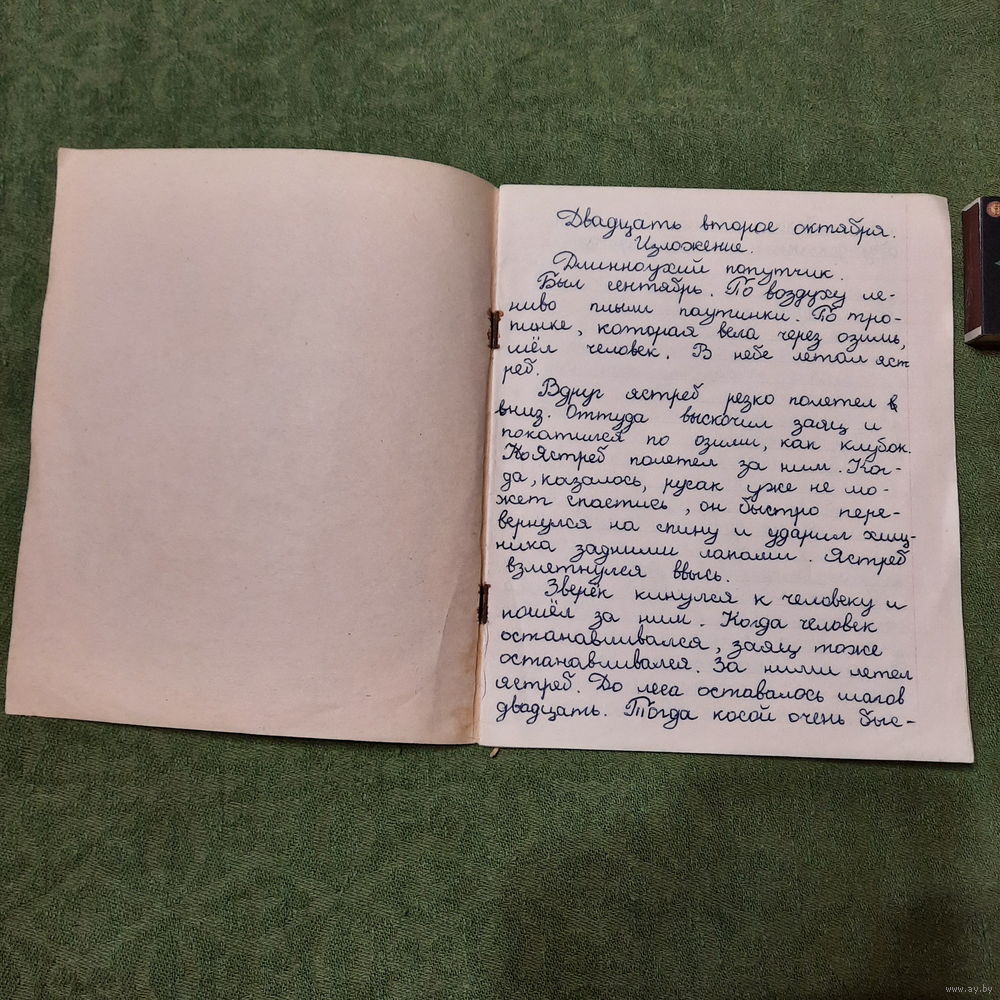 Двадцать второе октября.
Изложение.
Длинноухий попутчик.
Был сентябрь. По воздуху ле-
ниво плыли паутинки. По тро-
пинке, которая вела через озимь,
шёл человек. В небе летал яст
реб.
Вдруг ястреб резко полетел в
вниз. Оттуда выскочил заяц и
покатился по озими, как клубок.
Ястреб полетел за ним. Ког-
да, казалось, русак уже не мо-
жет спастись, он быстро пере-
вернулся на спину и ударил хищ-
ника задними лапами. Ястреб
взметнулся ввысь.
Зверёк кинулся к человеку и
пошёл за ним. Когда человек
останавливался, заяц тоже
останавливался. За ними летел
ястреб. До леса оставалось шагов
двадцать. Тогда косой очень быс-
www.ay.by